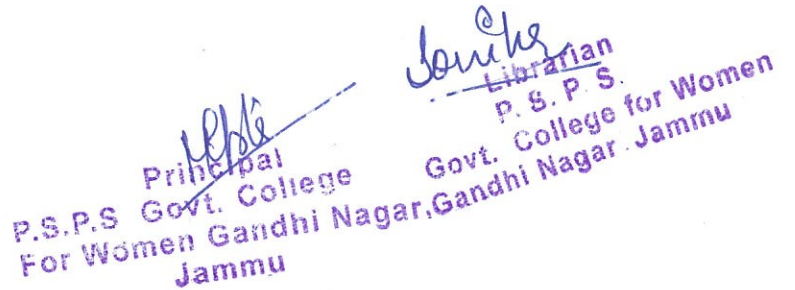 Principal
P.S.P.S Govt. College
For Women Gandhi Nagar,
Jammu
Librarian
P. S. P S.
Govt. College for Women
Gandhi Nagar Jammu